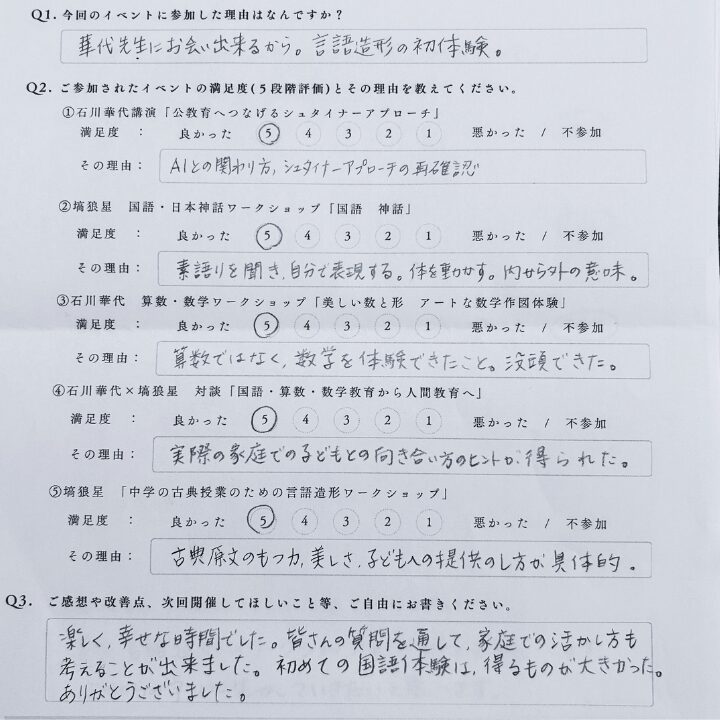 Q1. 今回のイベントに参加した理由はなんですか？
華代先生にお会い出来るから。言語造形の初体験。
Q2. ご参加されたイベントの満足度(5段階評価)とその理由を教えてください。
①石川華代講演「公教育へつなげるシュタイナーアプローチ」
満足度 ： 良かった 5 4 3 2 1 悪かった / 不参加
その理由： AIとの関わり方，シュタイナーアプローチの再確認
②塙狼星 国語・日本神話ワークショップ「国語 神話」
満足度 ： 良かった 5 4 3 2 1 悪かった / 不参加
その理由： 素語りを聞き，自分で表現する。体を動かす。内から外の意味。
③石川華代 算数・数学ワークショップ「美しい数と形 アートな数学作図体験」
満足度 ： 良かった 5 4 3 2 1 悪かった / 不参加
その理由： 算数ではなく，数学を体験できたこと。没頭できた。
④石川華代×塙狼星 対談「国語・算数・数学教育から人間教育へ」
満足度 ： 良かった 5 4 3 2 1 悪かった / 不参加
その理由： 実際の家庭での子どもとの向き合い方のヒントが得られた。
⑤塙狼星 「中学の古典授業のための言語造形ワークショップ」
満足度 ： 良かった 5 4 3 2 1 悪かった / 不参加
その理由： 古典原文のもつ力，美しさ，子どもへの提供のし方が具体的。
Q3. ご感想や改善点、次回開催してほしいこと等、ご自由にお書きください。
楽しく，幸せな時間でした。皆さんの質問を通して，家庭での活かし方も
考えることが出来ました。初めての国語体験は，得るものが大きかった。
ありがとうございました。